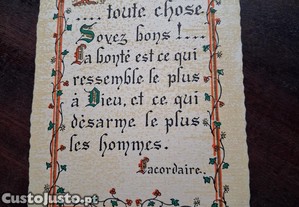 .... toute chose
Soyez bons !....
La bonté est ce qui
ressemble le plus
à Dieu, et ce qui
désarme le plus
les hommes.
Lacordaire..
CustoJusto.pt